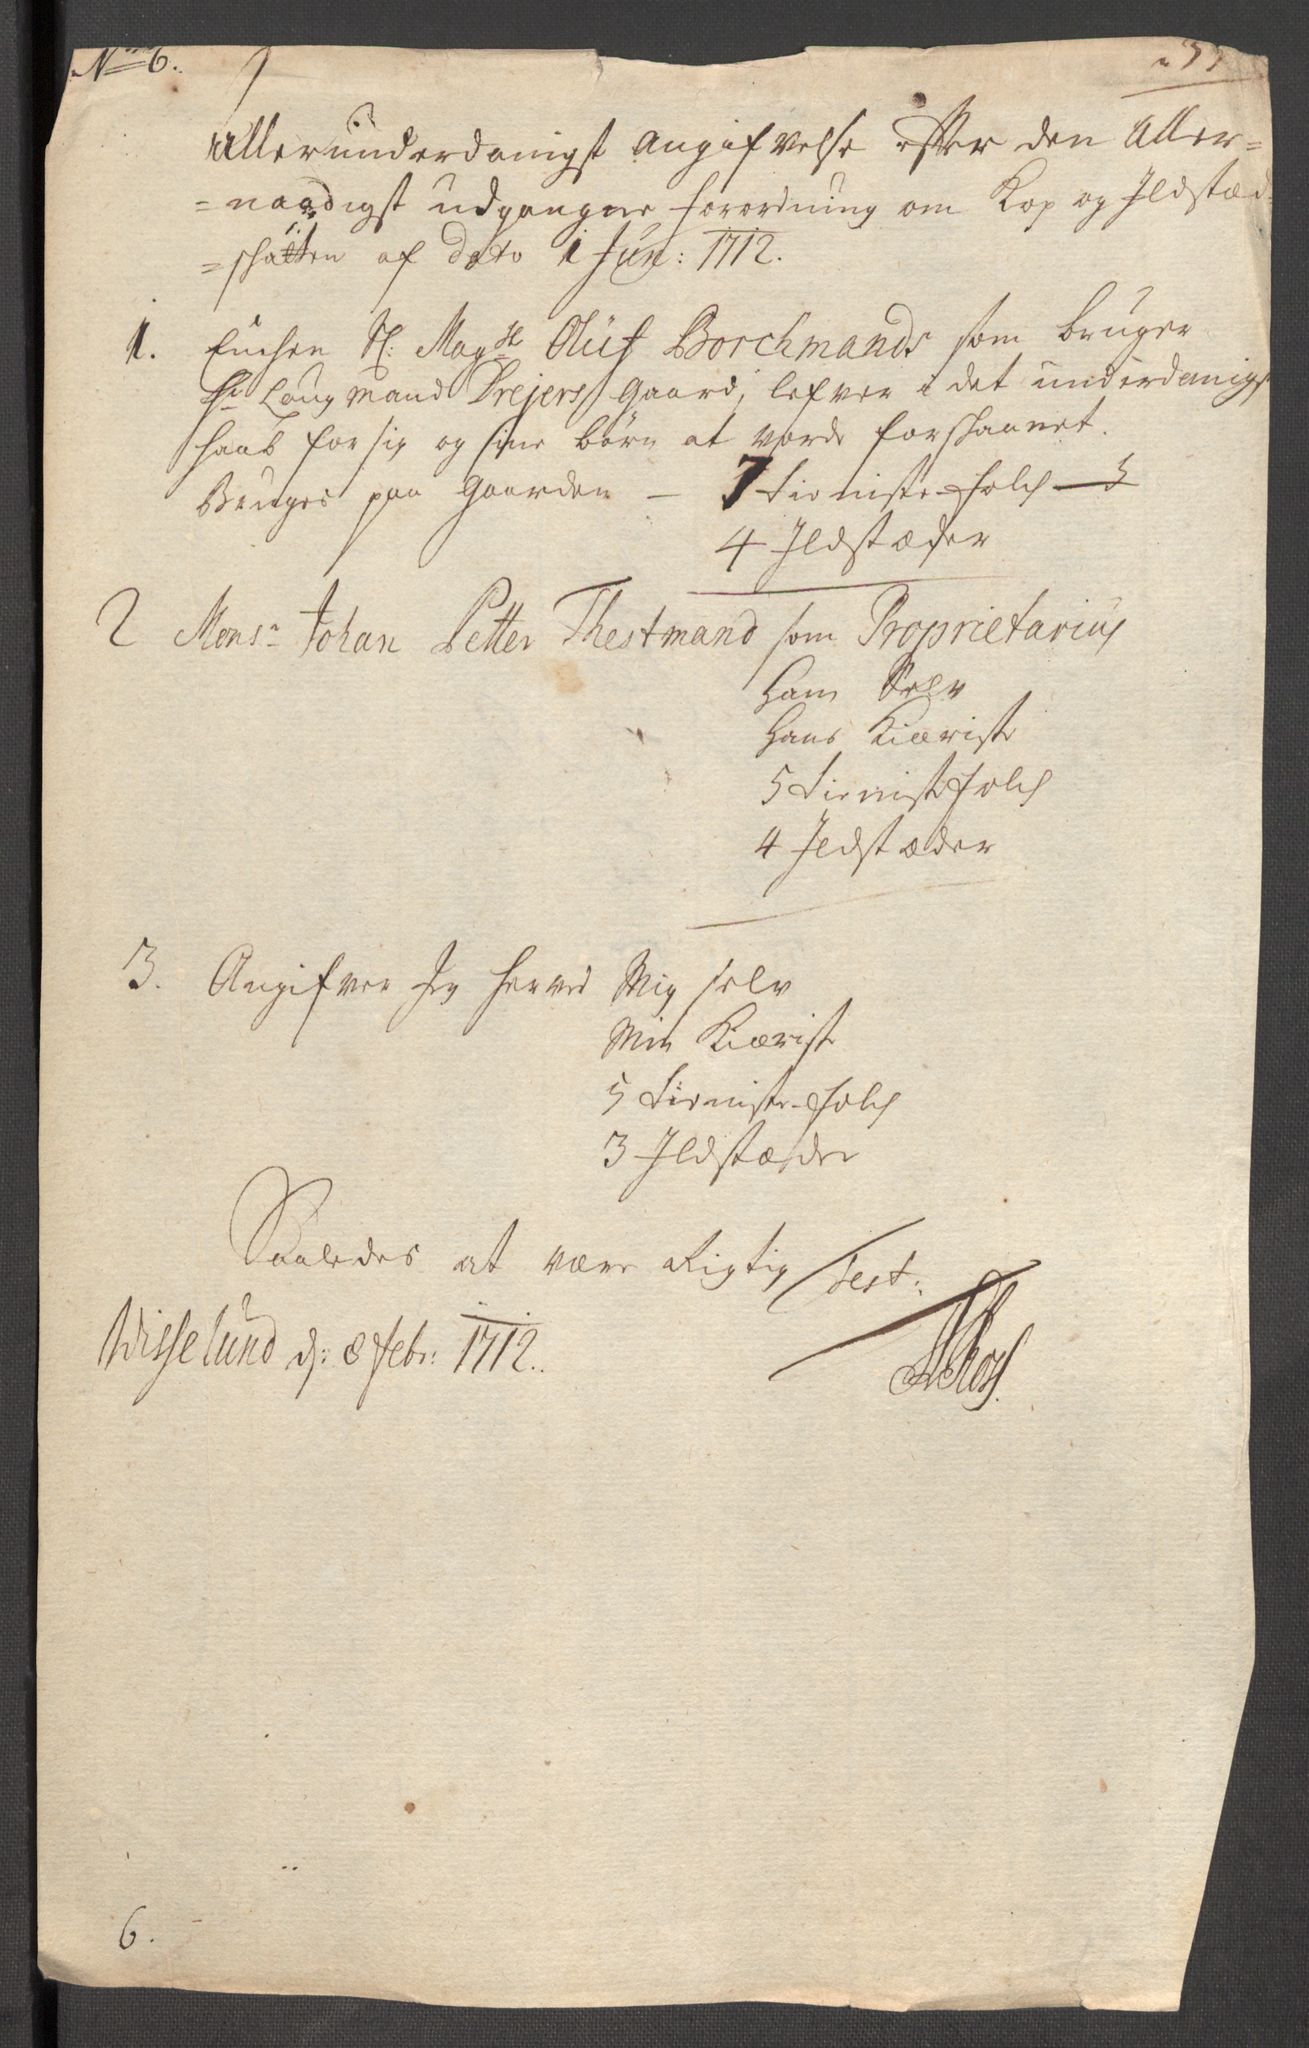 No 6.
Allerunderdanigst Angifvelse efter den Aller=
=naadigst udgangne forordning om Kop og Ildstæd
=skatten af dato 1 Jun: 1712.
1. Enchen Sl: Magst Oluf Borchmands som bruger
Hr Laugmand Drejers Gaard, lefver i det underdanigst
haab for sig og sine börn at vorde forskaanet.
Bruges paa Gaarden — 7 Tieniste-folch — 5
4 Ildstæder
2 Monsr Johan Petter Thestmand som Proprietarius
Ham Selv
Hans Kiæriste
5 Tieniste folch
4 Ildstæder
3. Angifver Jeg herved Mig selv
Min Kiæriste
5 Tieniste-folch
3 Ildstæder
Saaledes at være Rigtig Test:
Wisselund d: 8 Febr: 1712.
6.